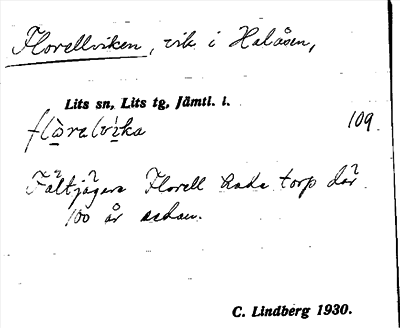 Florellviken, vik i Halåsen,
Lits sn, Lits tg, Jämtl. l.
flòrelvìka 109.
Fältjägare Florell hade torp där
100 år sedan.
C. Lindberg 1930.